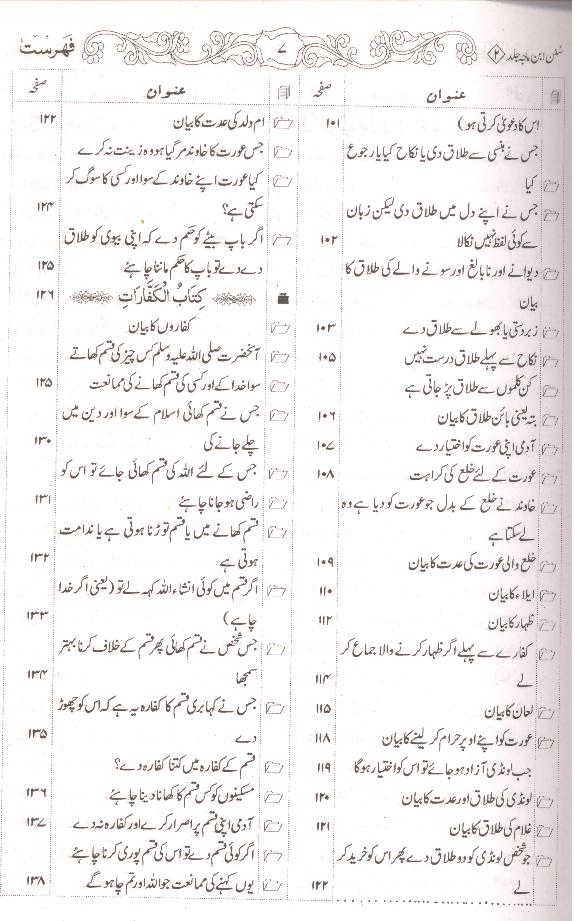 سُنن ابن ماجہ جلد ۲
۷
فہرست
عنوان
صفحہ
اس کا دعویٰ کرتی ہو)
۱۰۱
جس نے ہنسی سے طلاق دی یا نکاح کیا یا رجوع
کیا
جس نے اپنے دل میں طلاق دی لیکن زبان
سے کوئی لفظ نہیں نکالا
۱۰۲
دیوانے اور نابالغ اور سونے والے کی طلاق کا
بیان
زبردستی یا بھولے سے طلاق دے
۱۰۳
نکاح سے پہلے طلاق درست نہیں
۱۰۵
کن کلموں سے طلاق پڑ جاتی ہے
بتہ یعنی بائن طلاق کا بیان
۱۰۶
آدمی اپنی عورت کو اختیار دے
۱۰۷
عورت کے لئے خلع کی کراہت
۱۰۸
خاوند نے خلع کے بدل جو عورت کو دیا ہے وہ
لے سکتا ہے
خلع والی عورت کی عدت کا بیان
۱۰۹
ایلاء کا بیان
۱۱۰
ظہار کا بیان
۱۱۲
کفارے سے پہلے اگر ظہار کرنے والا جماع کر
لے
۱۱۴
لعان کا بیان
۱۱۵
عورت کو اپنے اوپر حرام کر لینے کا بیان
۱۱۸
جب لونڈی آزاد ہو جائے تو اس کو اختیار ہوگا
۱۱۹
لونڈی کی طلاق اور عدت کا بیان
۱۲۰
غلام کی طلاق کا بیان
۱۲۱
جو شخص لونڈی کو دو طلاق دے پھر اس کو خرید کر
لے
۱۲۲
عنوان
صفحہ
ام ولد کی عدت کا بیان
۱۲۲
جس عورت کا خاوند مر گیا ہو وہ زینت نہ کرے
کیا عورت اپنے خاوند کے سوا اور کسی کا سوگ کر
سکتی ہے؟
۱۲۴
اگر باپ بیٹے کو حکم دے کہ اپنی بیوی کو طلاق
دے دے تو باپ کا حکم ماننا چاہئے
۱۲۵
كِتَابُ الْكَفَّارَاتِ
۱۲۶
کفاروں کا بیان
آنحضرت صلی اللہ علیہ وسلم کس چیز کی قسم کھاتے
سوا خدا کے اور کسی کی قسم کھانے کی ممانعت
۱۲۵
جس نے قسم کھائی اسلام کے سوا اور دین میں
چلے جانے کی
۱۳۰
جس کے لئے اللہ کی قسم کھائی جائے تو اس کو
راضی ہو جانا چاہئے
۱۳۱
قسم کھانے میں یا قسم توڑنا ہوتی ہے یا ندامت
ہوتی ہے
۱۳۲
اگر قسم میں کوئی انشاء اللہ کہہ لے تو (یعنی اگر خدا
چاہے)
۱۳۳
جس شخص نے قسم کھائی پھر قسم کے خلاف کرنا بہتر
سمجھا
۱۳۴
جس نے کہا بری قسم کا کفارہ یہ ہے کہ اس کو چھوڑ
دے
۱۳۵
قسم کے کفارہ میں کتنا کفارہ دے؟
مسکینوں کو کس قسم کا کھانا دینا چاہئے
۱۳۶
آدمی اپنی قسم پر اصرار کرے اور کفارہ نہ دے
۱۳۷
اگر کوئی قسم دے تو اس کی قسم پوری کرنا چاہئے
یوں کہنے کی ممانعت جو اللہ اور تم چاہو گے
۱۳۸